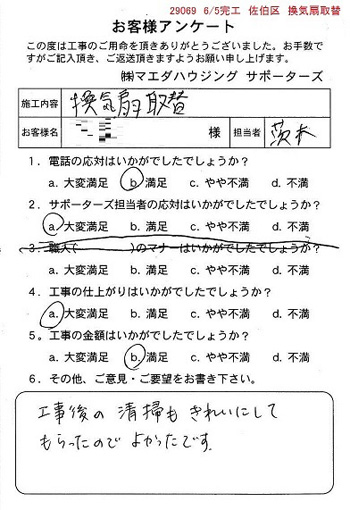 29069 6/5完工 佐伯区 換気扇取替
お客様アンケート
この度は工事のご用命を頂きありがとうございました。お手数で
すがご記入頂き、ご返送頂きますようお願い申し上げます。
㈱マエダハウジング サポーターズ
施工内容 換気扇取替
お客様名 様 担当者 茨木
1．電話の応対はいかがでしたでしょうか？
a. 大変満足 b. 満足 c. やや不満 d. 不満
2．サポーターズ担当者の応対はいかがでしたでしょうか？
a. 大変満足 b. 満足 c. やや不満 d. 不満
3．職人( )のマナーはいかがでしたでしょうか？
a. 大変満足 b. 満足 c. やや不満 d. 不満
4．工事の仕上がりはいかがでしたでしょうか？
a. 大変満足 b. 満足 c. やや不満 d. 不満
5。工事の金額はいかがでしたでしょうか？
a. 大変満足 b. 満足 c. やや不満 d. 不満
6．その他、ご意見・ご要望をお書き下さい。
工事後の清掃もきれいにして
もらったのでよかったです。